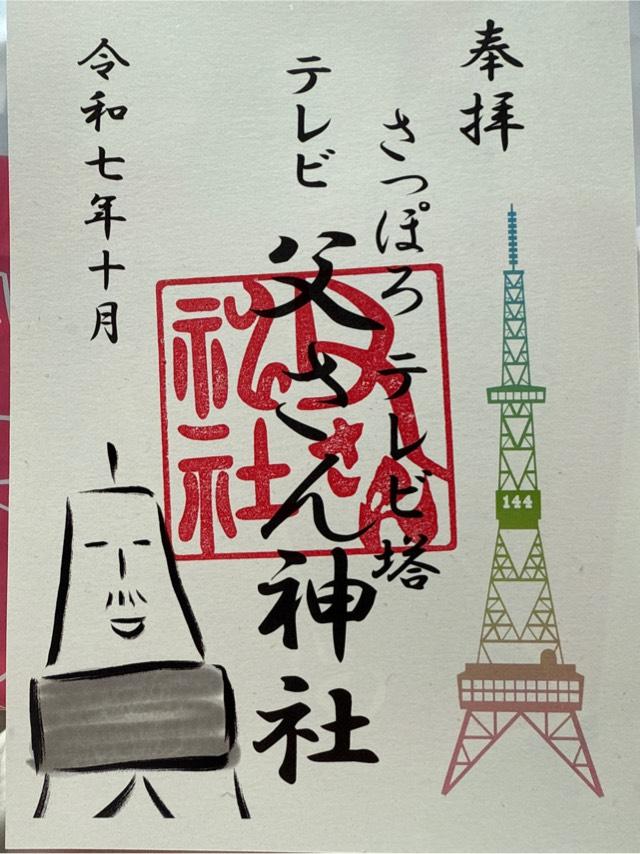 奉拝
さっぽろテレビ塔
テレビ父さん神社
令和七年十月
父さん
神社
144